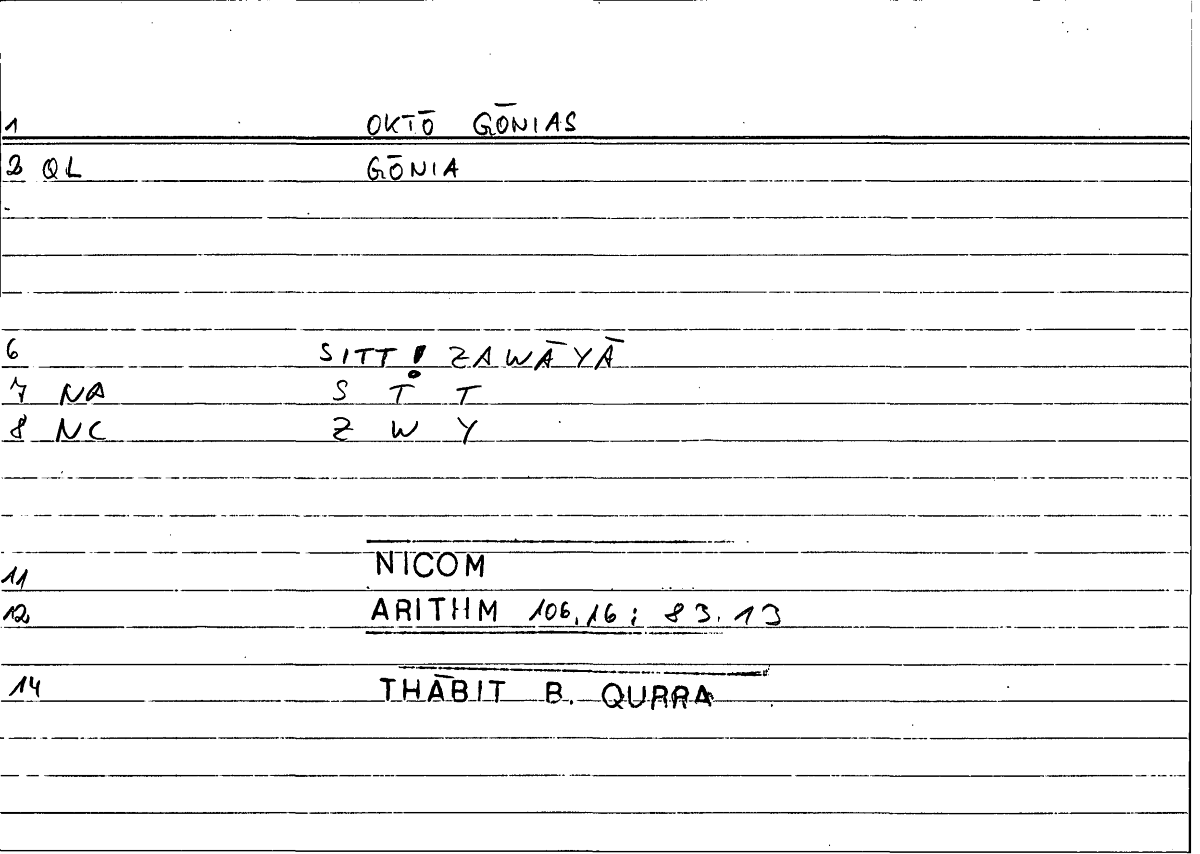 1 OKTŌ GŌNIAS
2 QL GŌNIA
6 SITT ! ZAWĀYĀ
7 NA S T T
8 NC Z W Y
11 NICOM
12 ARITHM 106,16 ; 83.13
14 THĀBIT B. QURRA